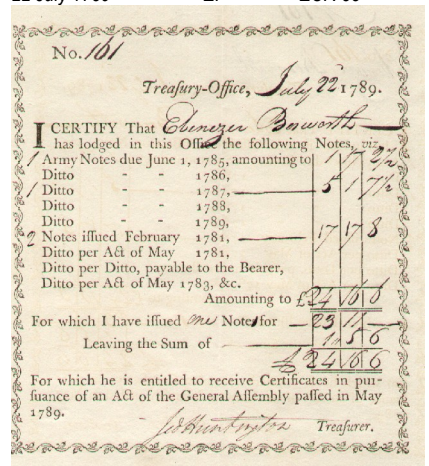 No. 161
Treaſury-Office, July 22 1789.
I CERTIFY That Ebenezer Bosworth
has lodged in this Office the following Notes, viz.
1 Army Notes due June 1, 1785, amounting to 1 17 2½
Ditto - - 1786,
1 Ditto - - 1787, — 5 1 7½
Ditto - - 1788,
Ditto - - 1789,
2 Notes iſſued February 1781, — 17 17 8
Ditto per Act of May 1781,
Ditto per Ditto, payable to the Bearer,
Ditto per Act of May 1783, &c.
Amounting to £ 24 16 6
For which I have iſſued one Notes for — 23 11 —
Leaving the Sum of — 1 5 6
£ 24 16 6
For which he is entitled to receive Certificates in pur-
ſuance of an Act of the General Aſſembly paſſed in May
1789.
Jed Huntington Treaſurer.